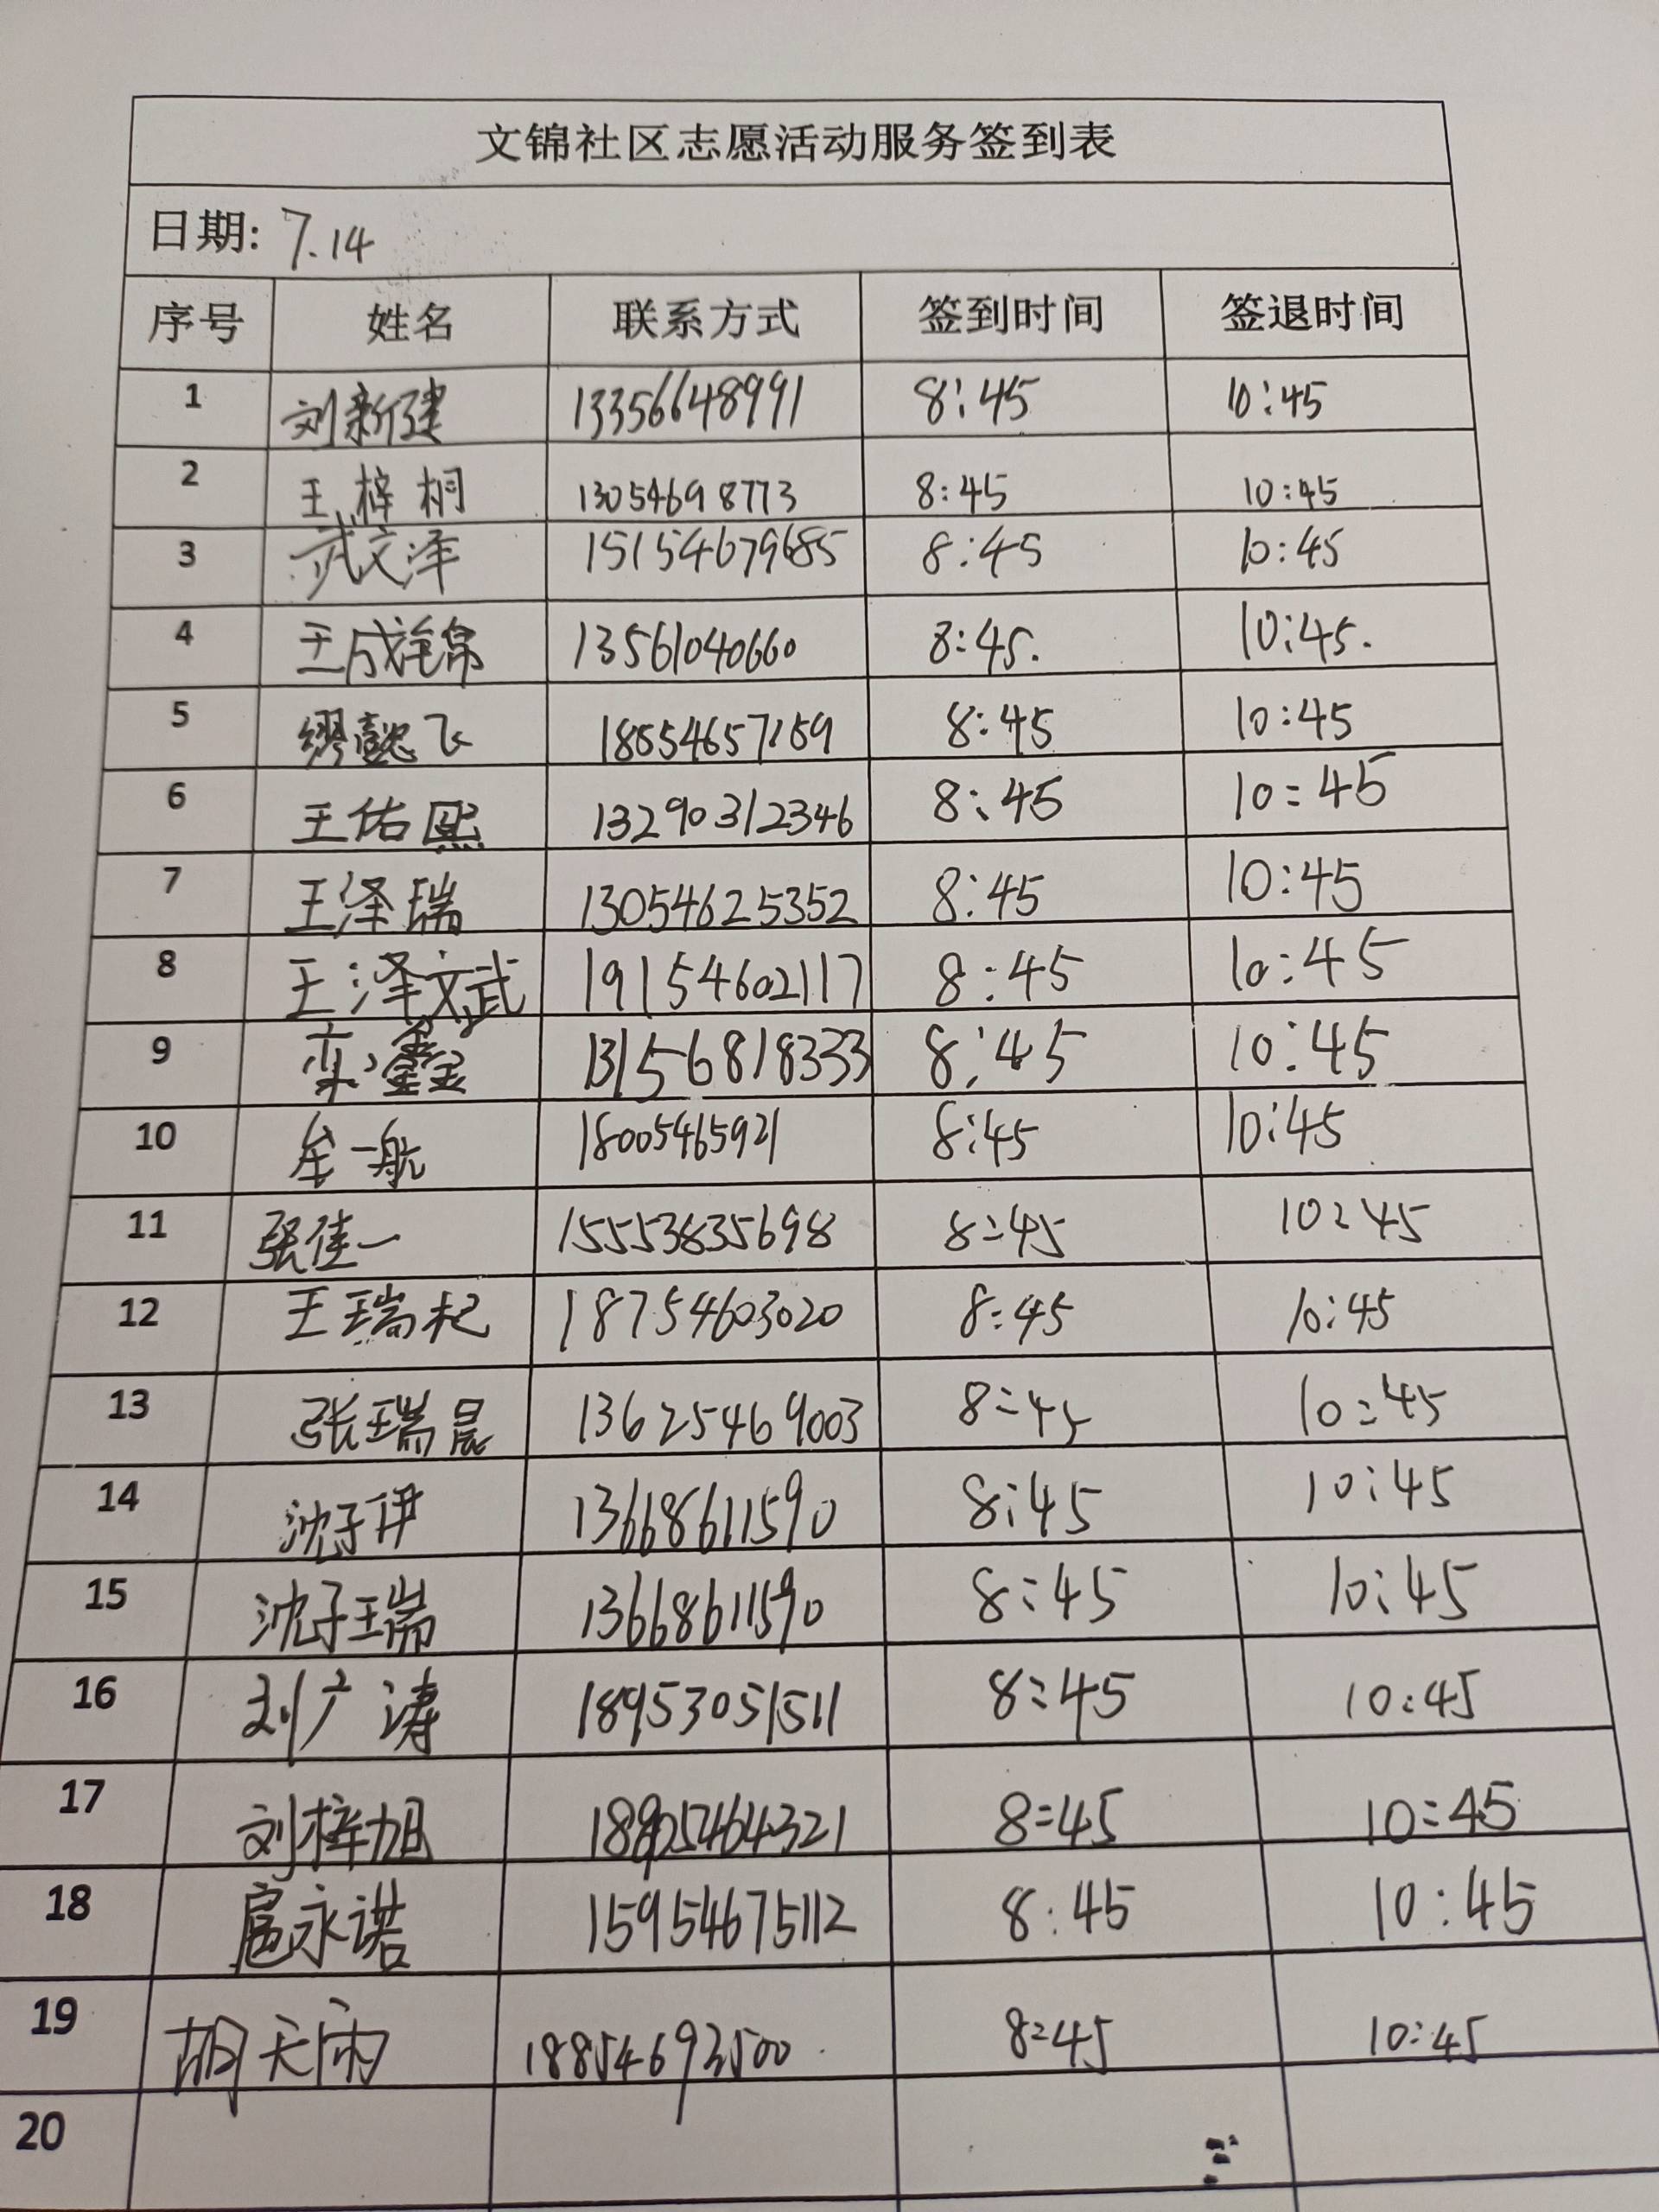 文锦社区志愿活动服务签到表
日期: 7.14
序号 姓名 联系方式 签到时间 签退时间
1 刘新建 13356648991 8:45 10:45
2 王梓桐 13054698773 8:45 10:45
3 武文泽 15154679685 8:45 10:45
4 13561040660 8:45. 10:45.
5 缪懿飞 18554657159 8:45 10:45
6 王佑熙 13290312346 8:45 10:45
7 王泽瑞 13054625352 8:45 10:45
8 王泽斌 19154602117 8:45 10:45
9 栾鑫 13156818333 8:45 10:45
10 牟一航 18005465921 8:45 10:45
11 张佳一 15553835698 8:45 10:45
12 王瑞杞 18754603020 8:45 10:45
13 张瑞晨 13625469003 8:45 10:45
14 沈子伊 13668611590 8:45 10:45
15 沈子瑞 13668611590 8:45 10:45
16 刘广涛 18953051511 8:45 10:45
17 刘梓旭 8:45 10:45
18 扈永诺 15954675112 8:45 10:45
19 胡天雨 18854693500 8:45 10:45
20